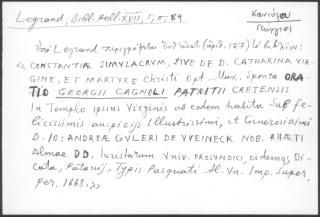 Legrand, Bibl. Hell. XVII, 5, σ. 89
Κανιόλου
Γιώργιος
Ὑπὸ Legrand περιγράφεται (ἀριθ. 127) τὸ βιβλίον:
« CONSTANTIÆ SIMVLACRVM, SIVE DE D. CATHARINA VIR-
GINE, ET MARTYRE Christi Opt. Max. Sponsa ORA-
TIO GEORGII CAGNOLI PATRITII CRETENSIS
In Templo ipsius Virginis ab eodem habita Sub fe-
licissimis auspicijs Illustrissimi, et Generosissimi
D. IO: ANDREÆ GVLERI DE VVEINECK NOB. RHÆTI
Almae DD. Iuristarum Vniv. PROSYNDICI, eidemq; Di-
cata, Patavij, Typis Pasquati Al. Vn. Imp. Super.
per. 1668.»